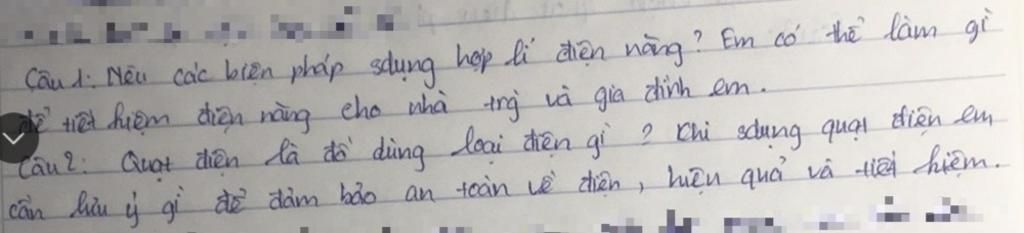 Câu 1: Nêu các biện pháp sdụng hợp lí điện năng? Em có thể làm gì
để tiết kiệm điện năng cho nhà trg và gia đình em.
Câu 2: Quạt điện là đồ dùng loại điện gì? Khi sdụng quạt điện em
cần lưu ý gì để đảm bảo an toàn về điện, hiệu quả và tiết kiệm.